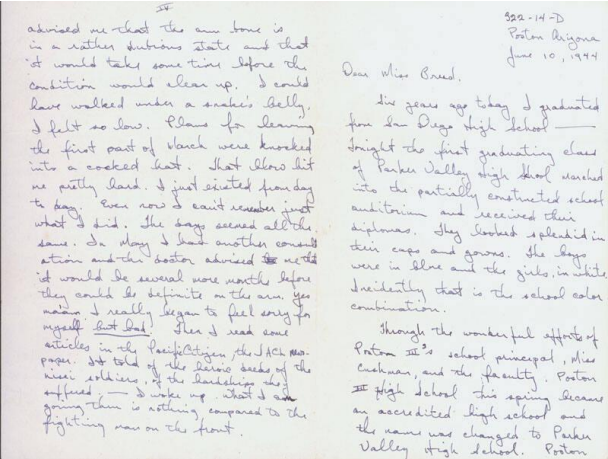 IV
advised me that the arm bone is
in a rather dubious state and that
it would take some time before the
condition would clear up. I could
have walked under a snake's belly,
I felt so low. Plans for leaving
the first part of March were knocked
into a cocked hat. That blow hit
me pretty hard. I just existed from day
to day. Even now I can't remember just
what I did. The days seemed all the
same. In May I had another consult
ation and the doctor advised me that
it would be several more months before
they could be definite on the arm. Yes
ma'am I really began to feel sorry for
myself but bad! Then I read some
articles in the Pacific Citizen, the JACL news-
paper. It told of the heroic deeds of the
nisei soldiers, of the hardships they
suffered. — I woke up. What I am
going thru is nothing, compared to the
fighting man on the front.
322-14-D
Poston Arizona
June 10, 1944
Dear Miss Breed,
Six years ago today I graduated
from San Diego High School —
Tonight the first graduating class
of Parker Valley High School marched
into the partially constructed school
auditorium and received their
diplomas. They looked splendid in
their caps and gowns. The boys
were in blue and the girls, in white.
Incidently that is the school color
combination.
Through the wonderful efforts of
Poston III's school principal, Miss
Cushman, and the faculty. Poston
III High School this spring became
an accredited high school and
the name was changed to Parker
Valley High School. Poston